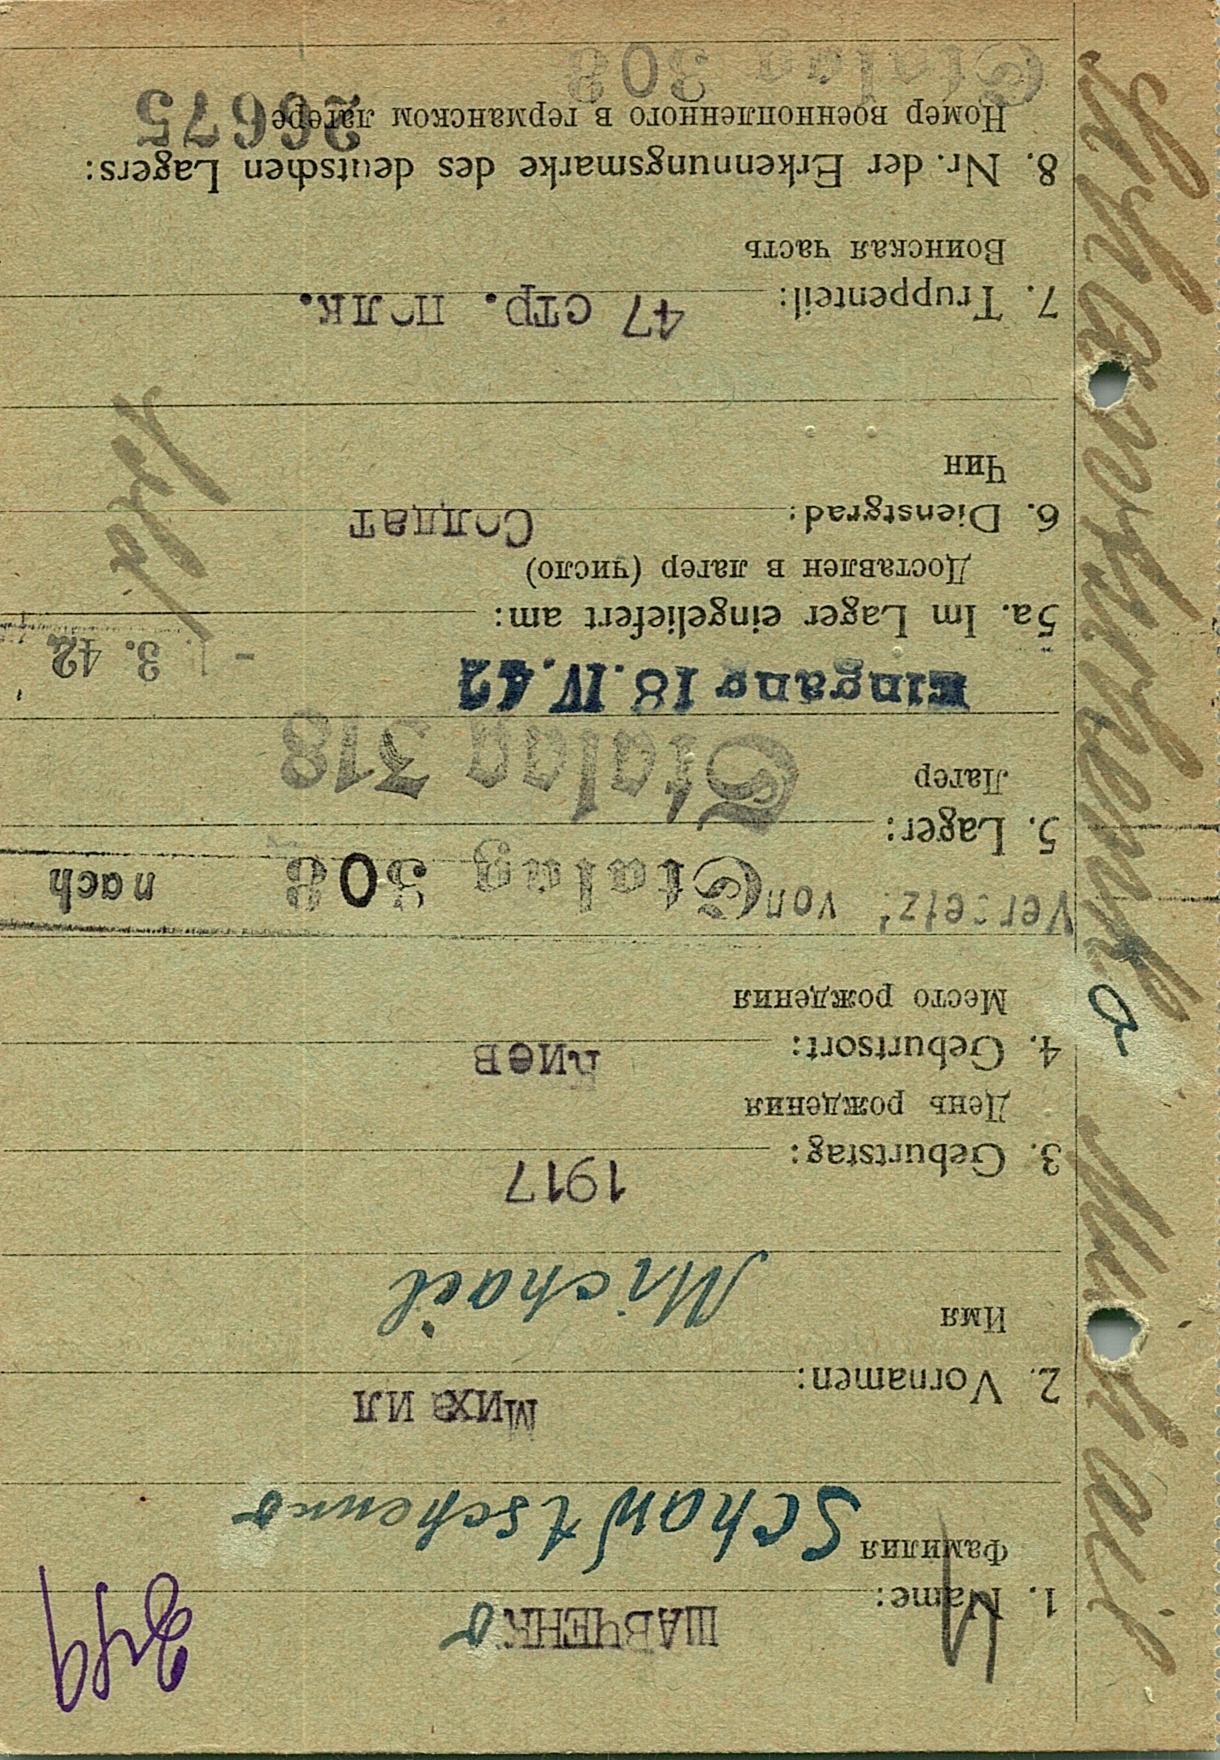 ШАВЧЕНКо
1. Name:
Фамилия
Schawtschenko
Михаил
2. Vornamen:
Имя
Michail
1917
3. Geburtstag:
День рождения
Киев
4. Geburtsort:
Место рождения
Versetzt von Stalag 308 nach
5. Lager:
Лагер
Stalag 318
Eingang 18. IV. 42
3. 42
5a. Im Lager eingeliefert am:
Доставлен в лагер (число)
Солдат
6. Dienstgrad:
Чин
47 стр. полк.
7. Truppenteil:
Воинская часть
8. Nr. der Erkennungsmarke des deutschen Lagers:
Номер военнопленного в германском лагере
26675
Stalag 308
Schawtschenko Michail